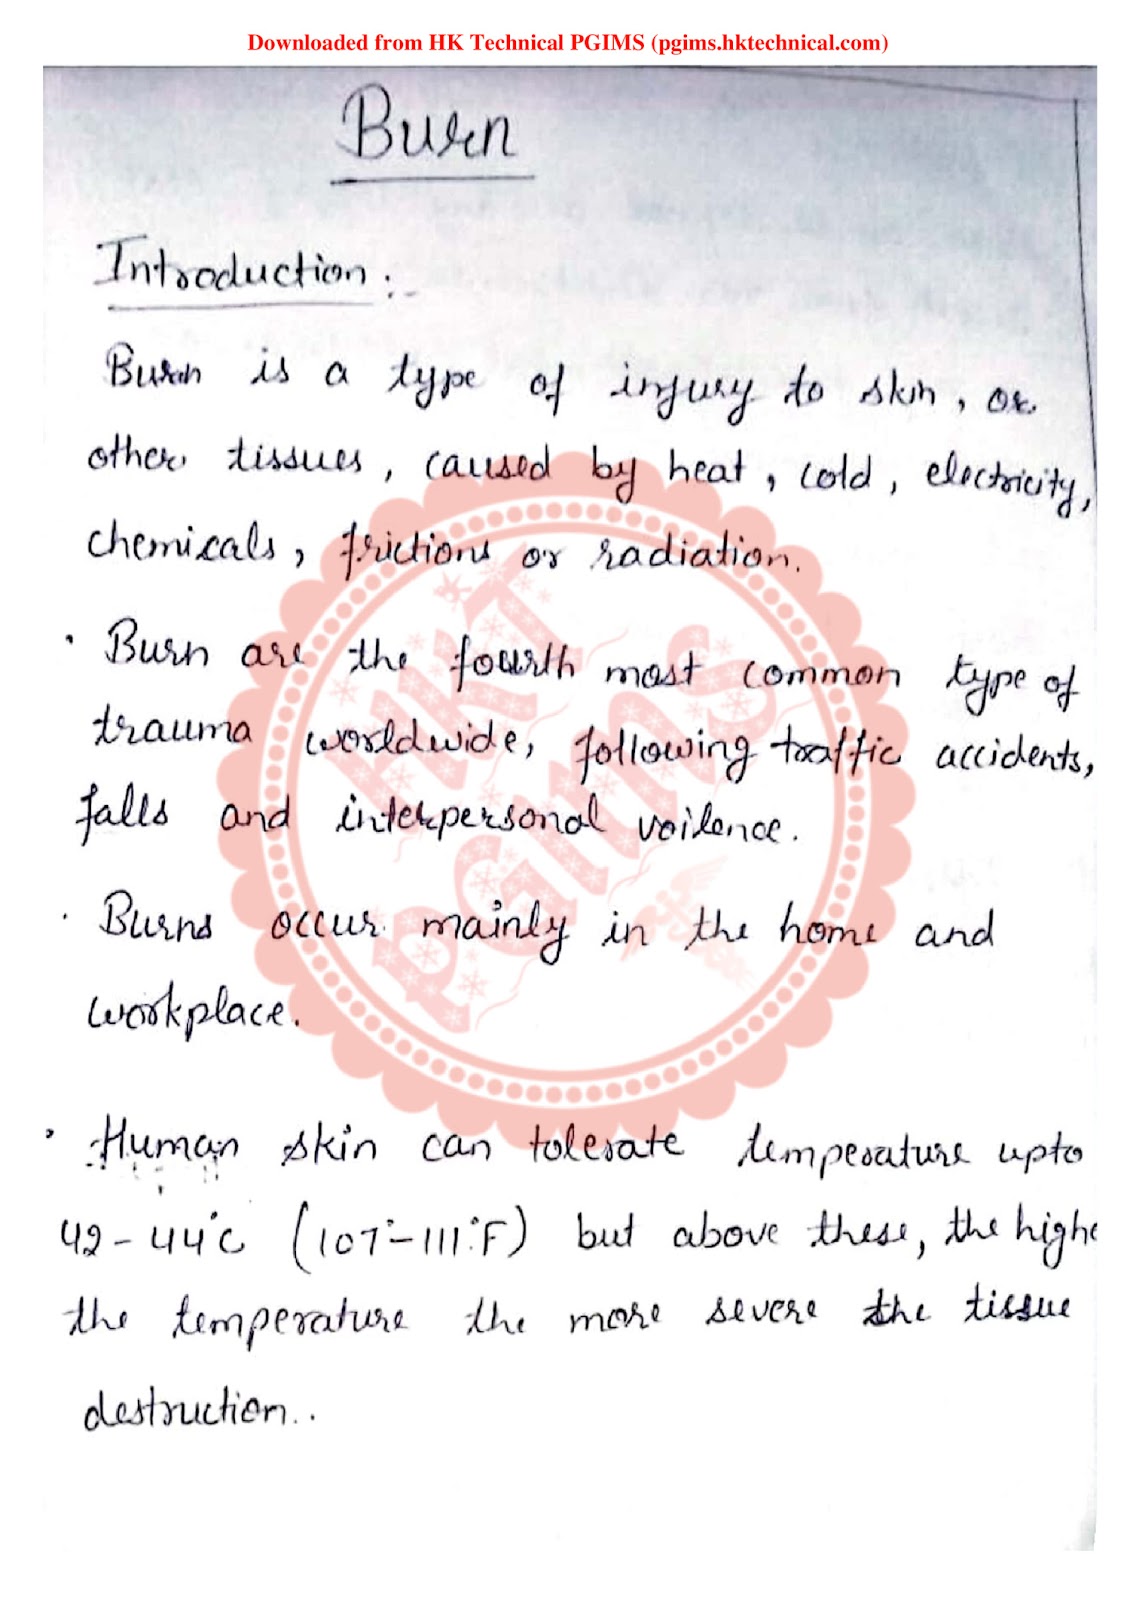 Downloaded from HK Technical PGIMS (pgims.hktechnical.com)
Burn
Introduction :-
Burn is a type of injury to skin, or
other tissues, caused by heat, cold, electricity,
chemicals, frictions or radiation.
· Burn are the fourth most common type of
trauma worldwide, following traffic accidents,
falls and interpersonal voilence.
· Burns occur mainly in the home and
workplace.
· Human skin can tolerate temperature upto
42-44°C (107°-111°F) but above these, the highe
the temperature the more severe the tissue
destruction..
HKT
PGIMS